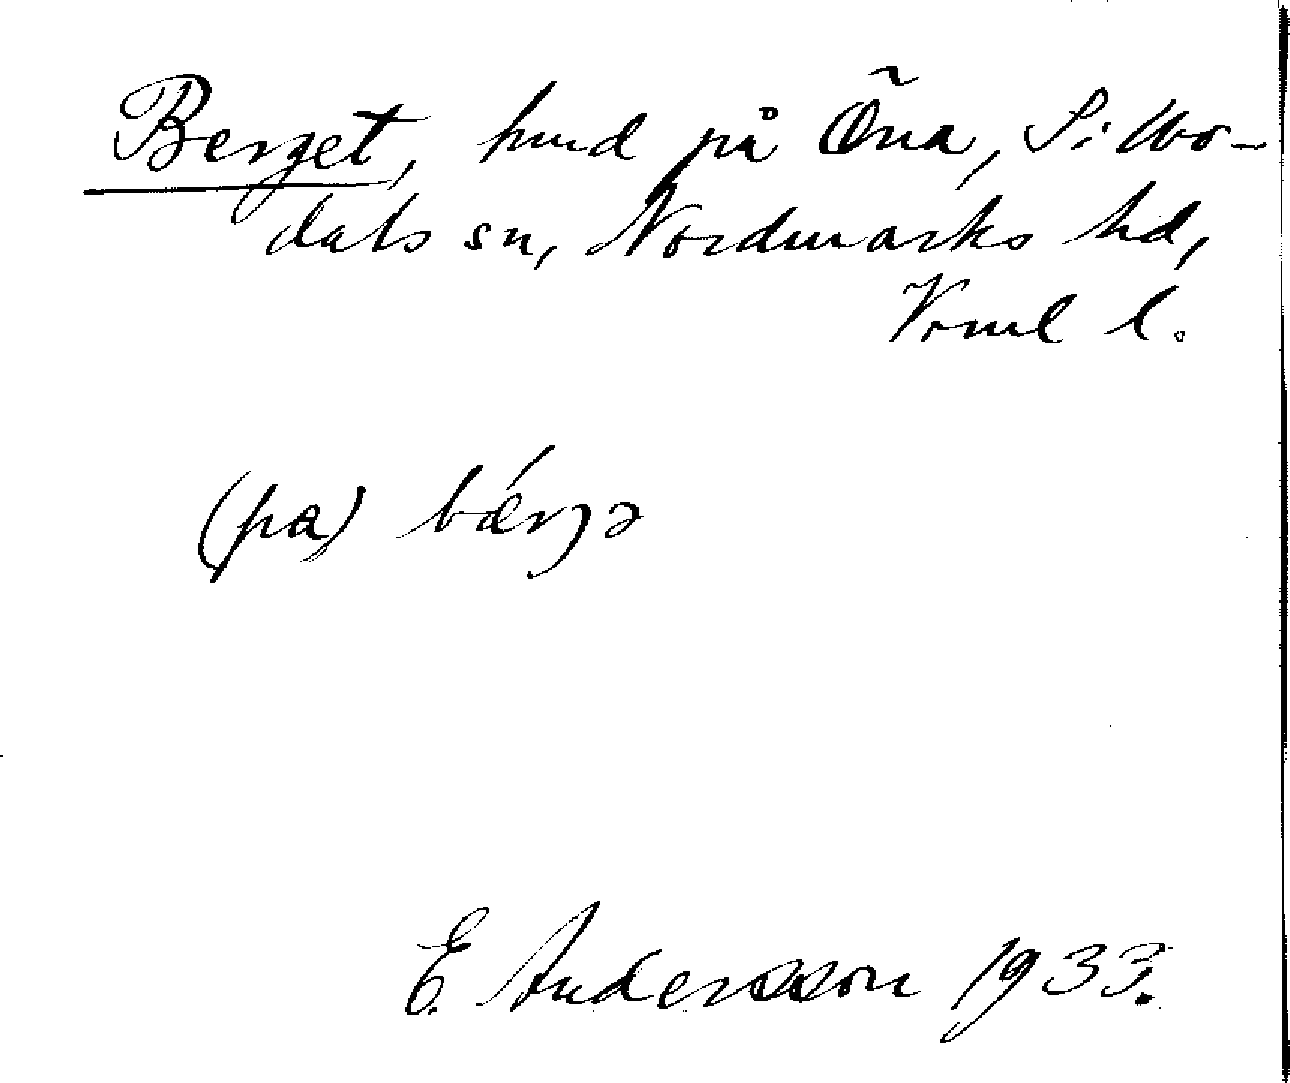 Berget, hmd på Öna, Sillbo-
dals sn, Nordmarks hd,
Vrml l.
(pa) bǽrjə
E. Andersson 1933.